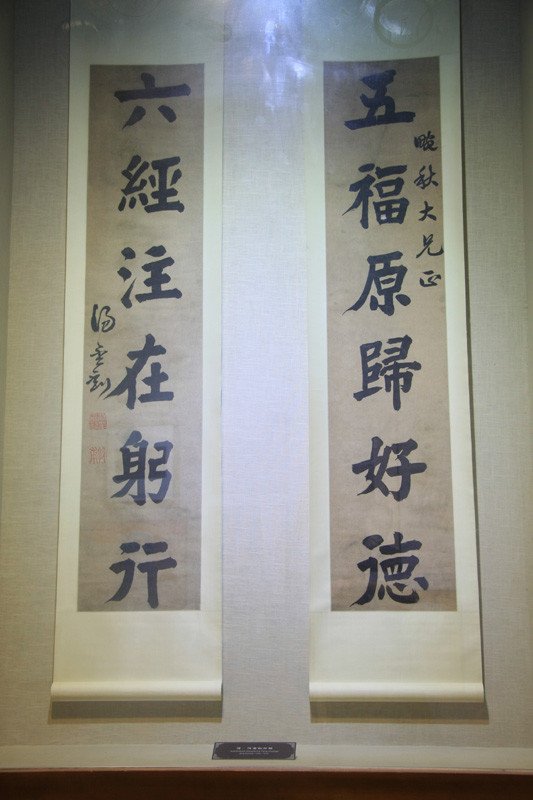 五福原歸好德
畹秋大兄正
六經注在躬行
湯金釗